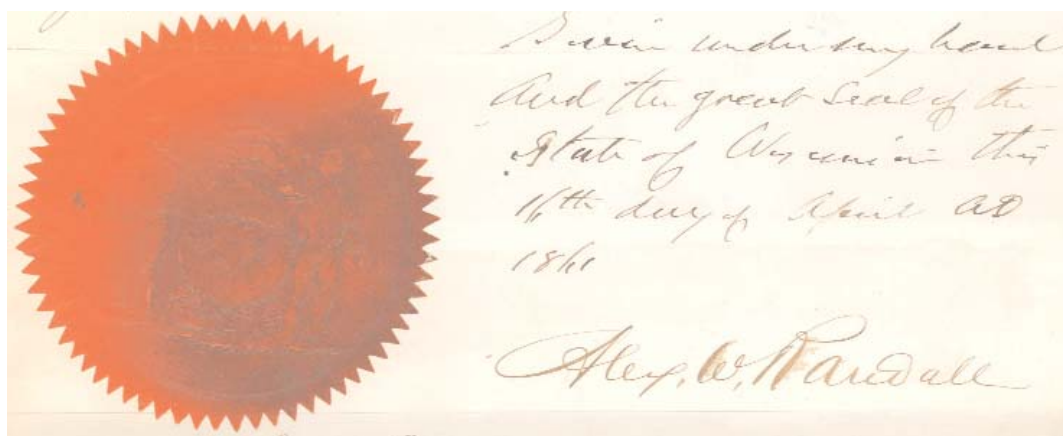 Given under my hand
And the great Seal of the
State of Wisconsin this
16th day of April AD
1861
Alex. W. Randall